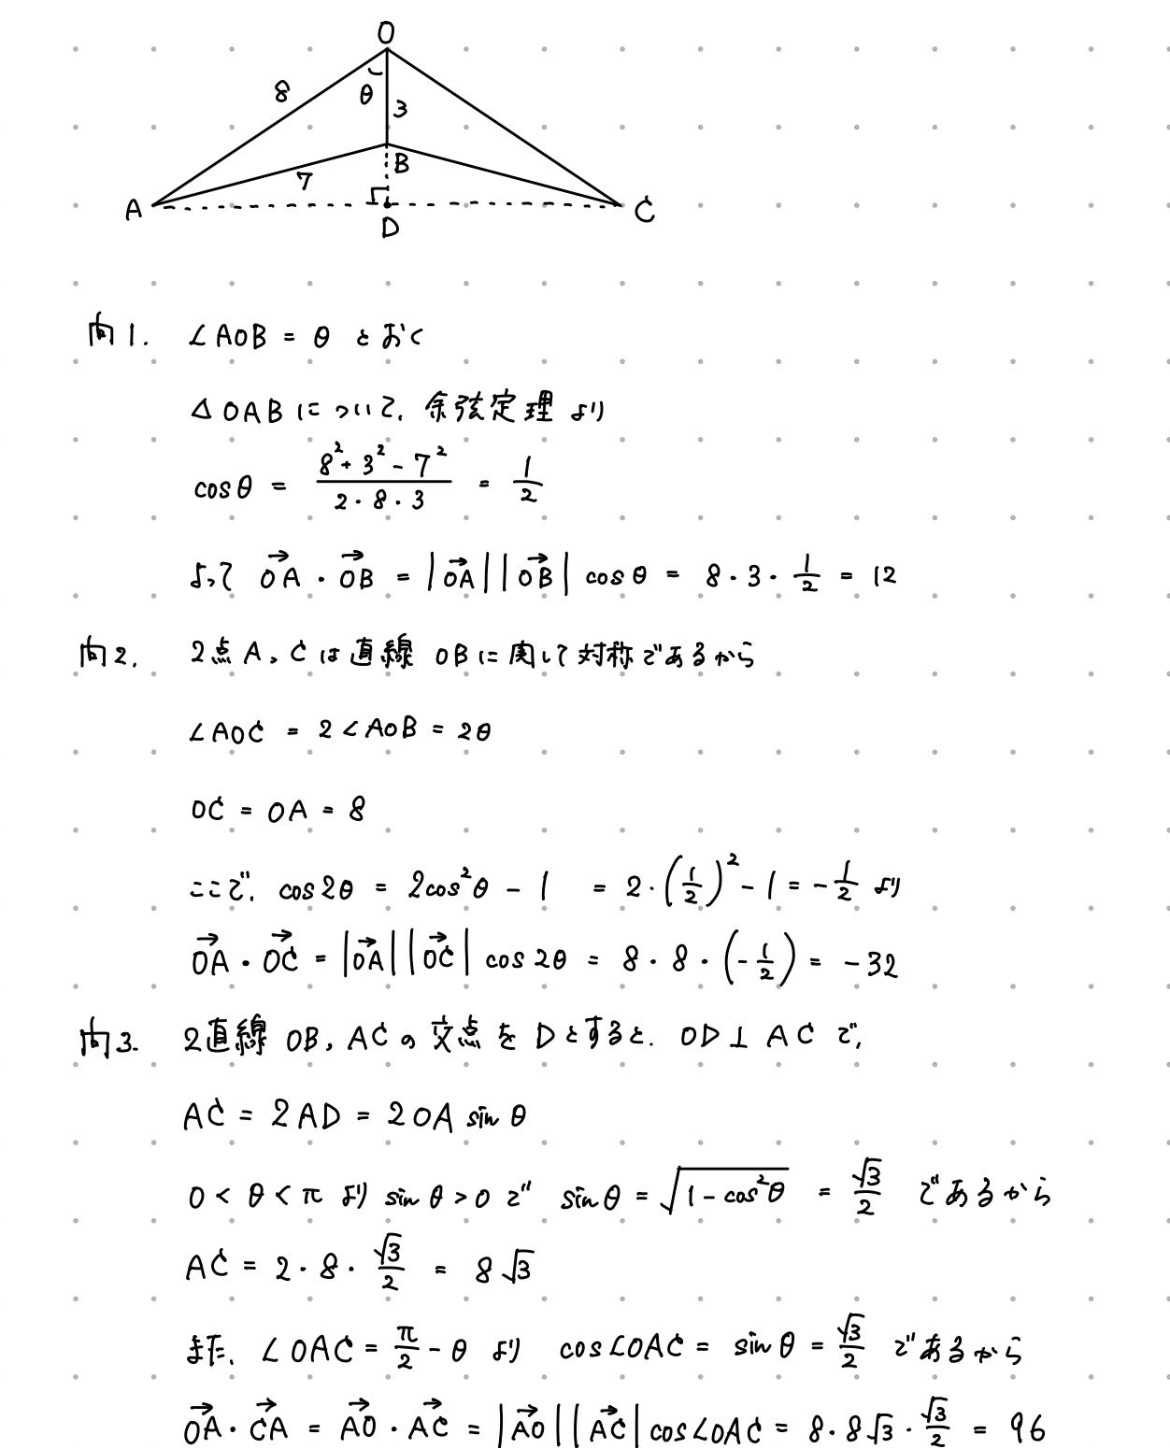 O
8
θ
3
B
7
A
D
C
問1. ∠AOB = θ とおく
△OABについて, 余弦定理より
cosθ = (8² + 3² - 7²)/(2・8・3) = 1/2
よって OA→・OB→ = |OA→||OB→| cosθ = 8・3・1/2 = 12
問2. 2点A, Cは直線OBに関して対称であるから
∠AOC = 2∠AOB = 2θ
OC = OA = 8
ここで, cos2θ = 2cos²θ - 1 = 2・(1/2)² - 1 = -1/2 より
OA→・OC→ = |OA→||OC→| cos2θ = 8・8・(-1/2) = -32
問3. 2直線OB, ACの交点をDとすると, OD⊥ACで,
AC = 2AD = 2OA sinθ
0 < θ < π より sinθ > 0 で sinθ = √(1 - cos²θ) = √3/2 であるから
AC = 2・8・√3/2 = 8√3
また, ∠OAC = π/2 - θ より cos∠OAC = sinθ = √3/2 であるから
OA→・CA→ = AO→・AC→ = |AO→||AC→| cos∠OAC = 8・8√3・√3/2 = 96